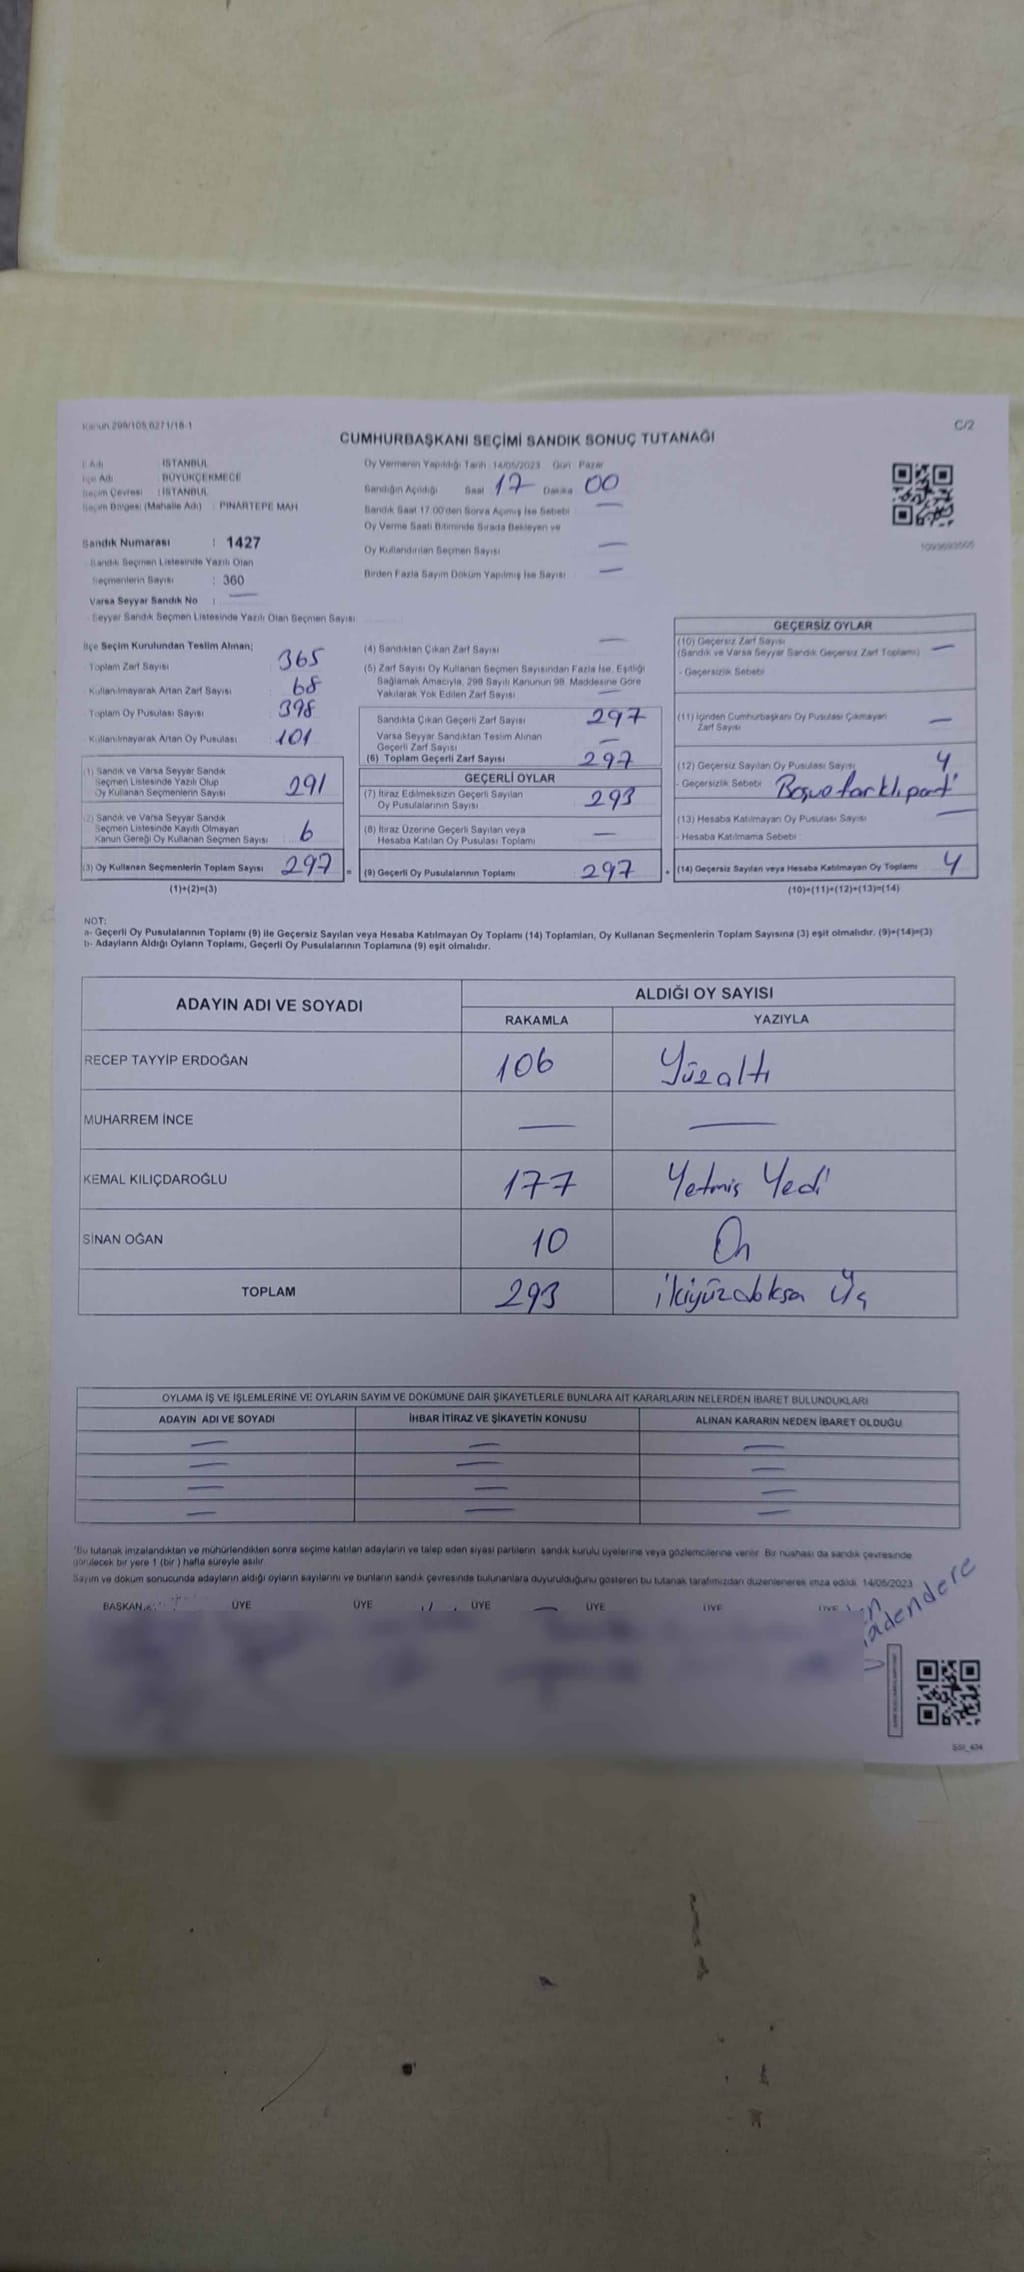 Kanun 298/105,6271/18-1
C/2
CUMHURBAŞKANI SEÇİMİ SANDIK SONUÇ TUTANAĞI
İl Adı : İSTANBUL
İlçe Adı : BÜYÜKÇEKMECE
Seçim Çevresi : İSTANBUL
Seçim Bölgesi (Mahalle Adı) : PINARTEPE MAH
Sandık Numarası : 1427
Sandık Seçmen Listesinde Yazılı Olan
Seçmenlerin Sayısı : 360
Varsa Seyyar Sandık No : —
Seyyar Sandık Seçmen Listesinde Yazılı Olan Seçmen Sayısı
Oy Vermenin Yapıldığı Tarih : 14/05/2023 Gün : Pazar
Sandığın Açıldığı Saat 17 Dakika 00
Sandık Saat 17.00'den Sonra Açılmış İse Sebebi —
Oy Verme Saati Bitiminde Sırada Bekleyen ve
Oy Kullandırılan Seçmen Sayısı —
Birden Fazla Sayım Döküm Yapılmış İse Sayısı —
İlçe Seçim Kurulundan Teslim Alınan;
Toplam Zarf Sayısı 365
Kullanılmayarak Artan Zarf Sayısı 68
Toplam Oy Pusulası Sayısı 398
Kullanılmayarak Artan Oy Pusulası 101
(1) Sandık ve Varsa Seyyar Sandık
Seçmen Listesinde Yazılı Olup
Oy Kullanan Seçmenlerin Sayısı 291
(2) Sandık ve Varsa Seyyar Sandık
Seçmen Listesinde Kayıtlı Olmayan
Kanun Gereği Oy Kullanan Seçmen Sayısı 6
(3) Oy Kullanan Seçmenlerin Toplam Sayısı 297
(1)+(2)=(3)
(4) Sandıktan Çıkan Zarf Sayısı —
(5) Zarf Sayısı Oy Kullanan Seçmen Sayısından Fazla İse, Eşitliği
Sağlamak Amacıyla, 298 Sayılı Kanunun 98. Maddesine Göre
Yakılarak Yok Edilen Zarf Sayısı —
Sandıkta Çıkan Geçerli Zarf Sayısı 297
Varsa Seyyar Sandıktan Teslim Alınan
Geçerli Zarf Sayısı —
(6) Toplam Geçerli Zarf Sayısı 297
GEÇERLİ OYLAR
(7) İtiraz Edilmeksizin Geçerli Sayılan
Oy Pusulalarının Sayısı 293
(8) İtiraz Üzerine Geçerli Sayılan veya
Hesaba Katılan Oy Pusulası Toplamı —
= (9) Geçerli Oy Pusulalarının Toplamı 297
GEÇERSİZ OYLAR
(10) Geçersiz Zarf Sayısı
(Sandık ve Varsa Seyyar Sandık Geçersiz Zarf Toplamı) —
- Geçersizlik Sebebi
(11) İçinden Cumhurbaşkanı Oy Pusulası Çıkmayan
Zarf Sayısı —
(12) Geçersiz Sayılan Oy Pusulası Sayısı 4
- Geçersizlik Sebebi
(13) Hesaba Katılmayan Oy Pusulası Sayısı —
- Hesaba Katılmama Sebebi
+ (14) Geçersiz Sayılan veya Hesaba Katılmayan Oy Toplamı 4
(10)+(11)+(12)+(13)=(14)
NOT:
a- Geçerli Oy Pusulalarının Toplamı (9) ile Geçersiz Sayılan veya Hesaba Katılmayan Oy Toplamı (14) Toplamları, Oy Kullanan Seçmenlerin Toplam Sayısına (3) eşit olmalıdır. (9)+(14)=(3)
b- Adayların Aldığı Oyların Toplamı, Geçerli Oy Pusulalarının Toplamına (9) eşit olmalıdır.
ADAYIN ADI VE SOYADI
ALDIĞI OY SAYISI
RAKAMLA YAZIYLA
RECEP TAYYİP ERDOĞAN 106 Yüzaltı
MUHARREM İNCE — —
KEMAL KILIÇDAROĞLU 177 Yetmiş Yedi
SİNAN OĞAN 10 On
TOPLAM 293 ikiyüzdoksan Üç
OYLAMA İŞ VE İŞLEMLERİNE VE OYLARIN SAYIM VE DÖKÜMÜNE DAİR ŞİKAYETLERLE BUNLARA AİT KARARLARIN NELERDEN İBARET BULUNDUKLARI
ADAYIN ADI VE SOYADI İHBAR İTİRAZ VE ŞİKAYETİN KONUSU ALINAN KARARIN NEDEN İBARET OLDUĞU
— — —
— — —
— — —
— — —
"Bu tutanak imzalandıktan ve mühürlendikten sonra seçime katılan adayların ve talep eden siyasi partilerin sandık kurulu üyelerine veya gözlemcilerine verilir. Bir nüshası da sandık çevresinde
görülecek bir yere 1 (bir) hafta süreyle asılır.
Sayım ve döküm sonucunda adayların aldığı oyların sayılarını ve bunların sandık çevresinde bulunanlara duyurulduğunu gösteren bu tutanak tarafımızdan düzenlenerek imza edildi. 14/05/2023
BAŞKAN ÜYE ÜYE ÜYE ÜYE ÜYE ÜYE